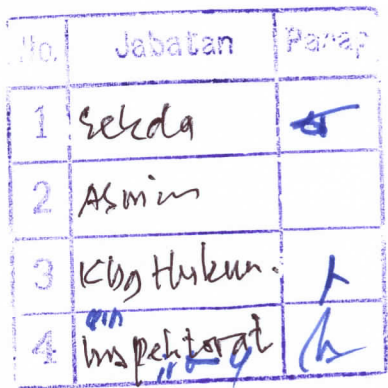 No. Jabatan Paraf
1 Sekda
2 Asmin
3 Kbg Hukum.
4 Inspektorat